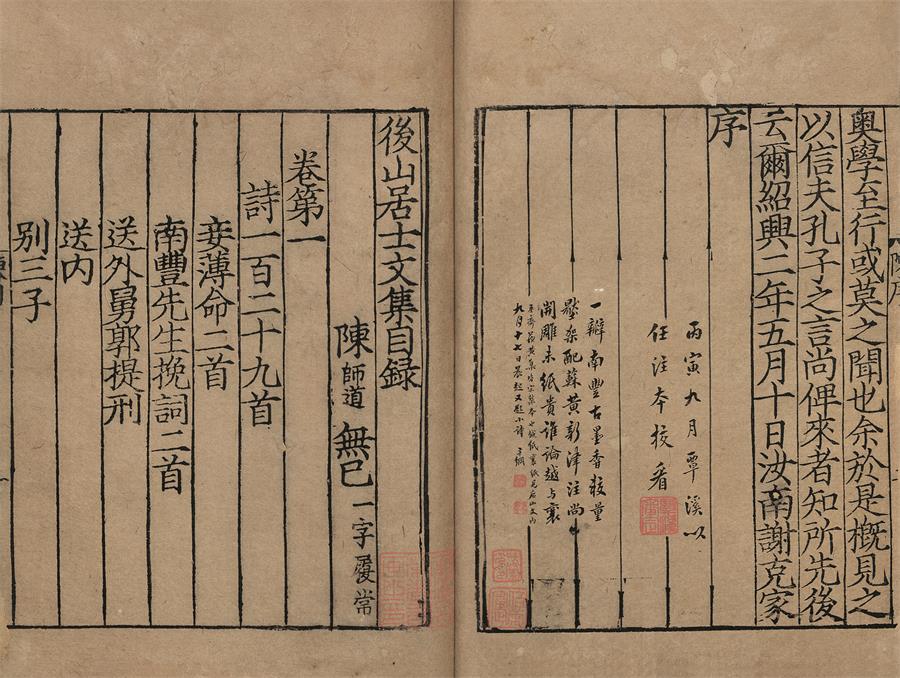 奧學至行或莫之聞也余於是概見之
以信夫孔子之言尚俾來者知所先後
云爾紹興二年五月十日汝南謝克家
序
丙寅九月覃溪以
任注本校看
一瓣南豐古墨香較量
壓架配蘇黃新津注尚
開雕未紙貴誰論越与襄
九月十七日晨起又題小詩
方綱
後山居士文集目錄
陳師道無已一字履常
卷第一
詩一百二十九首
妾薄命二首
南豐先生挽詞二首
送外舅郭提刑
送内
别三子